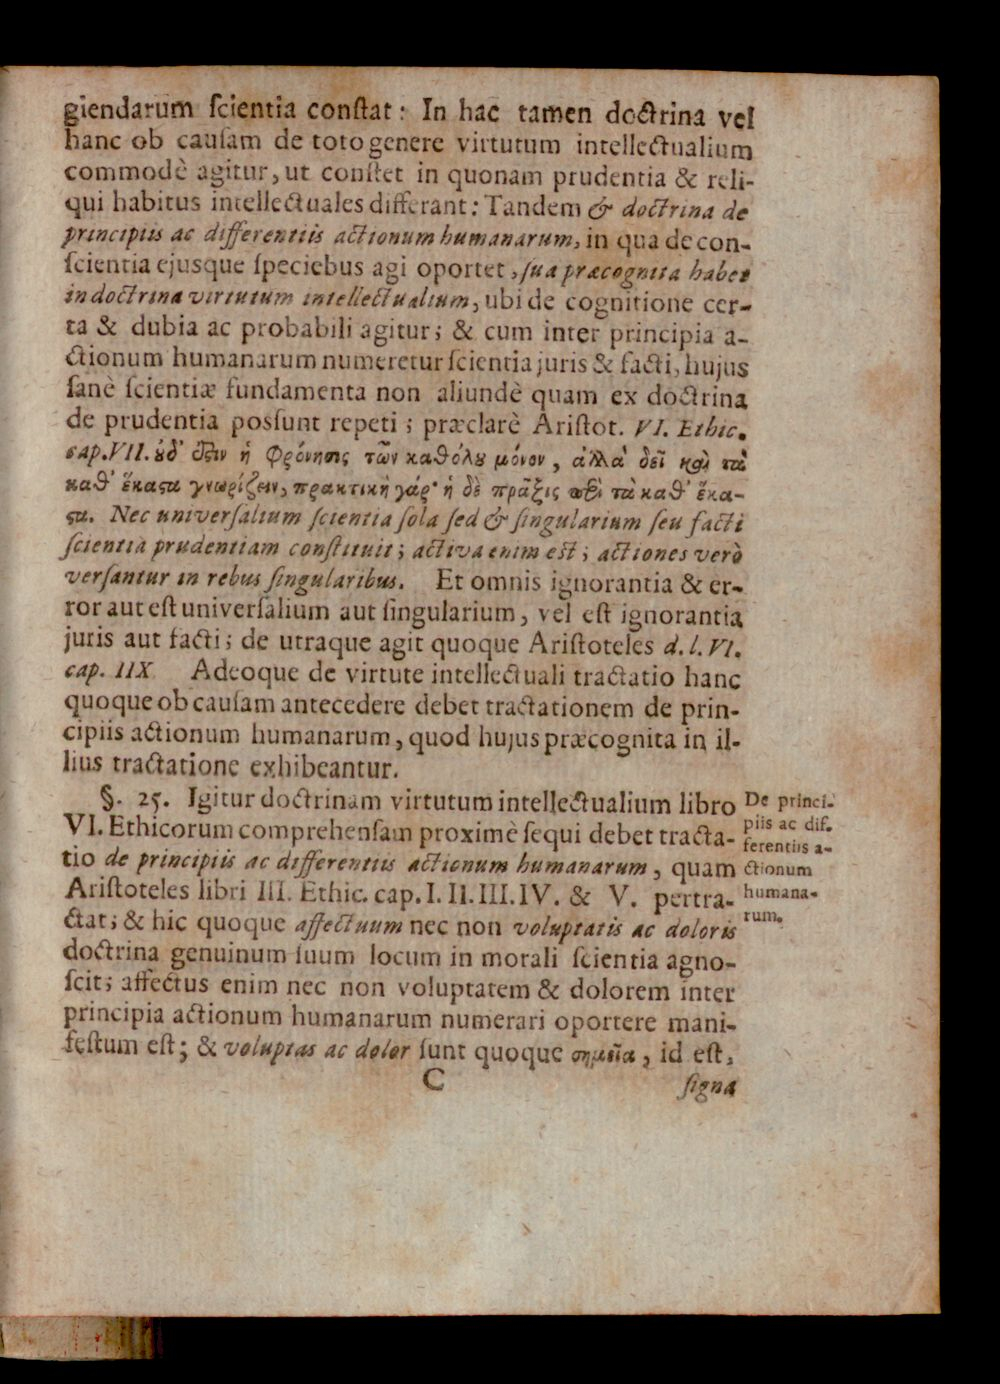 giendarum ſcientia conſtat: In hac tamen doctrina vel
hanc ob cauſam de toto genere virtutum intellectualium
commodè agitur, ut conſtet in quonam prudentia & reli-
qui habitus intellectuales differant: Tandem & doctrina de
principiis ac differentiis actionum humanarum, in qua de con-
ſcientia ejusque ſpeciebus agi oportet, ſua præcognita habet
in doctrina virtutum intellectualium, ubi de cognitione cer-
ta & dubia ac probabili agitur; & cum inter principia a-
ctionum humanarum numeretur ſcientia juris & facti, hujus
ſanè ſcientiæ fundamenta non aliundè quam ex doctrina
de prudentia posſunt repeti; præclarè Ariſtot. VI. Ethic.
cap. VII. ȣδ' ϛὶν ἡ Φρόνησις τῶν καθόλȣ μόνον, ἀλλὰ δεῖ καὶ τὰ
καθ' ἕκαϛα γνωρίζειν, πρακτικὴ γάρ· ἡ δὲ πρᾶξις περὶ τὰ καθ' ἕκα-
ϛα. Nec univerſalium ſcientia ſola ſed & ſingularium ſeu facti
ſcientia prudentiam conſtituit; activa enim eſt; actiones verò
verſantur in rebus ſingularibus. Et omnis ignorantia & er-
ror aut eſt univerſalium aut ſingularium, vel eſt ignorantia
juris aut facti; de utraque agit quoque Ariſtoteles d. l. VI.
cap. IIX Adeoque de virtute intellectuali tractatio hanc
quoque ob cauſam antecedere debet tractationem de prin-
cipiis actionum humanarum, quod hujus præcognita in il-
lius tractatione exhibeantur.
§. 25. Igitur doctrinam virtutum intellectualium libro
VI. Ethicorum comprehenſam proximè ſequi debet tracta-
tio de principiis ac differentiis actionum humanarum, quam
Ariſtoteles libri III. Ethic. cap. I. II. III. IV. & V. pertra-
ctat; & hic quoque affectuum nec non voluptatis ac doloris
doctrina genuinum ſuum locum in morali ſcientia agno-
ſcit; affectus enim nec non voluptatem & dolorem inter
principia actionum humanarum numerari oportere mani-
feſtum eſt; & voluptas ac dolor ſunt quoque σημεῖα, id eſt,
C
ſigna
De princi-
piis ac dif-
ferentiis a-
ctionum
humana-
rum.